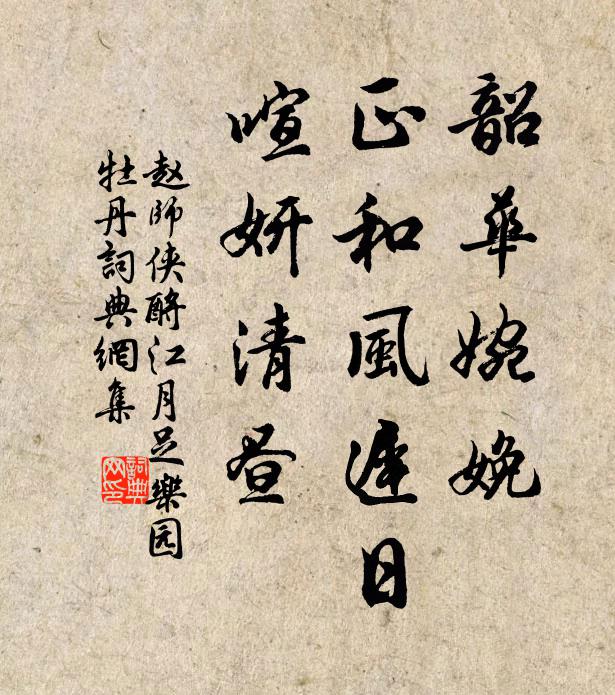 韶華婉娩
正和風遲日
喧妍清晝
赵師侠酹江月足樂园
牡丹詞典網集
詞典
网印